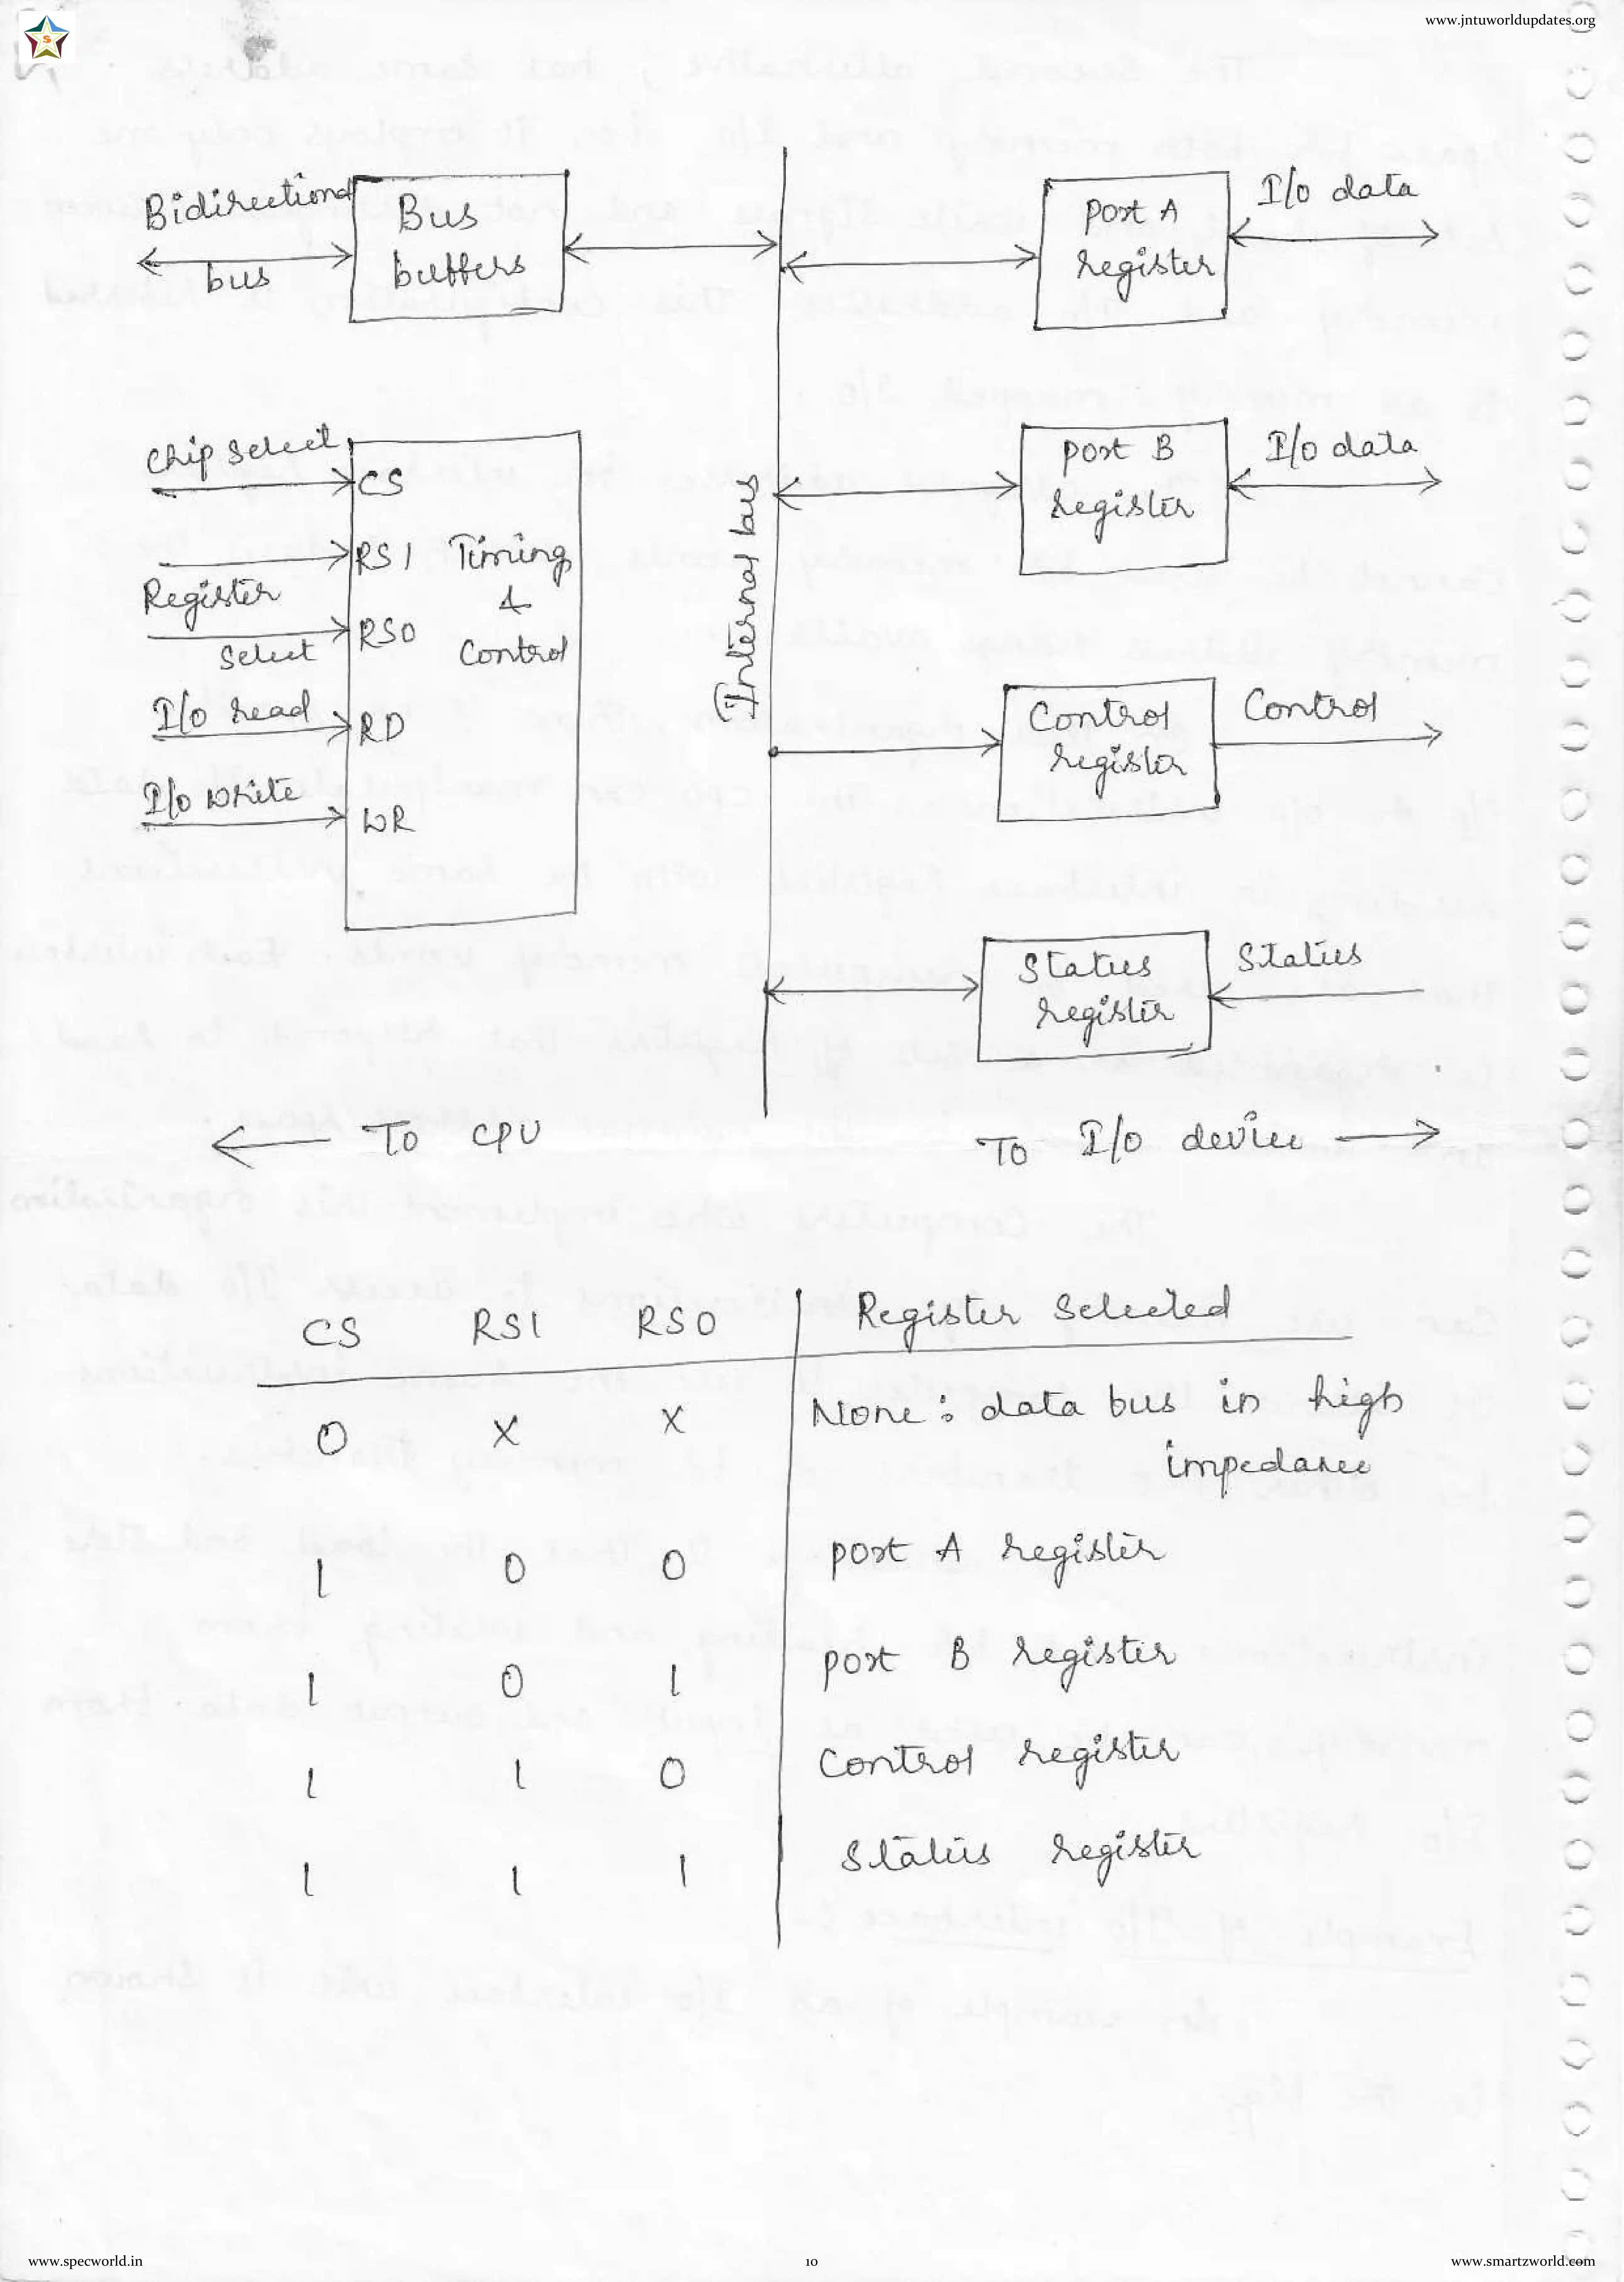 www.jntuworldupdates.org
S
Bidirectional
bus
Bus
buffers
Port A
register
I/o data
Chip Select
CS
RS1
Register
Select
RS0
I/o read
RD
I/o write
WR
Timing
&
Control
Internal bus
port B
register
I/o data
Control
register
Control
Status
register
Status
To CPU
To I/o device
CS RS1 RS0 Register Selected
0 X X None : data bus in high
impedance
1 0 0 port A register
1 0 1 port B register
1 1 0 Control register
1 1 1 Status register
www.specworld.in
10
www.smartzworld.com